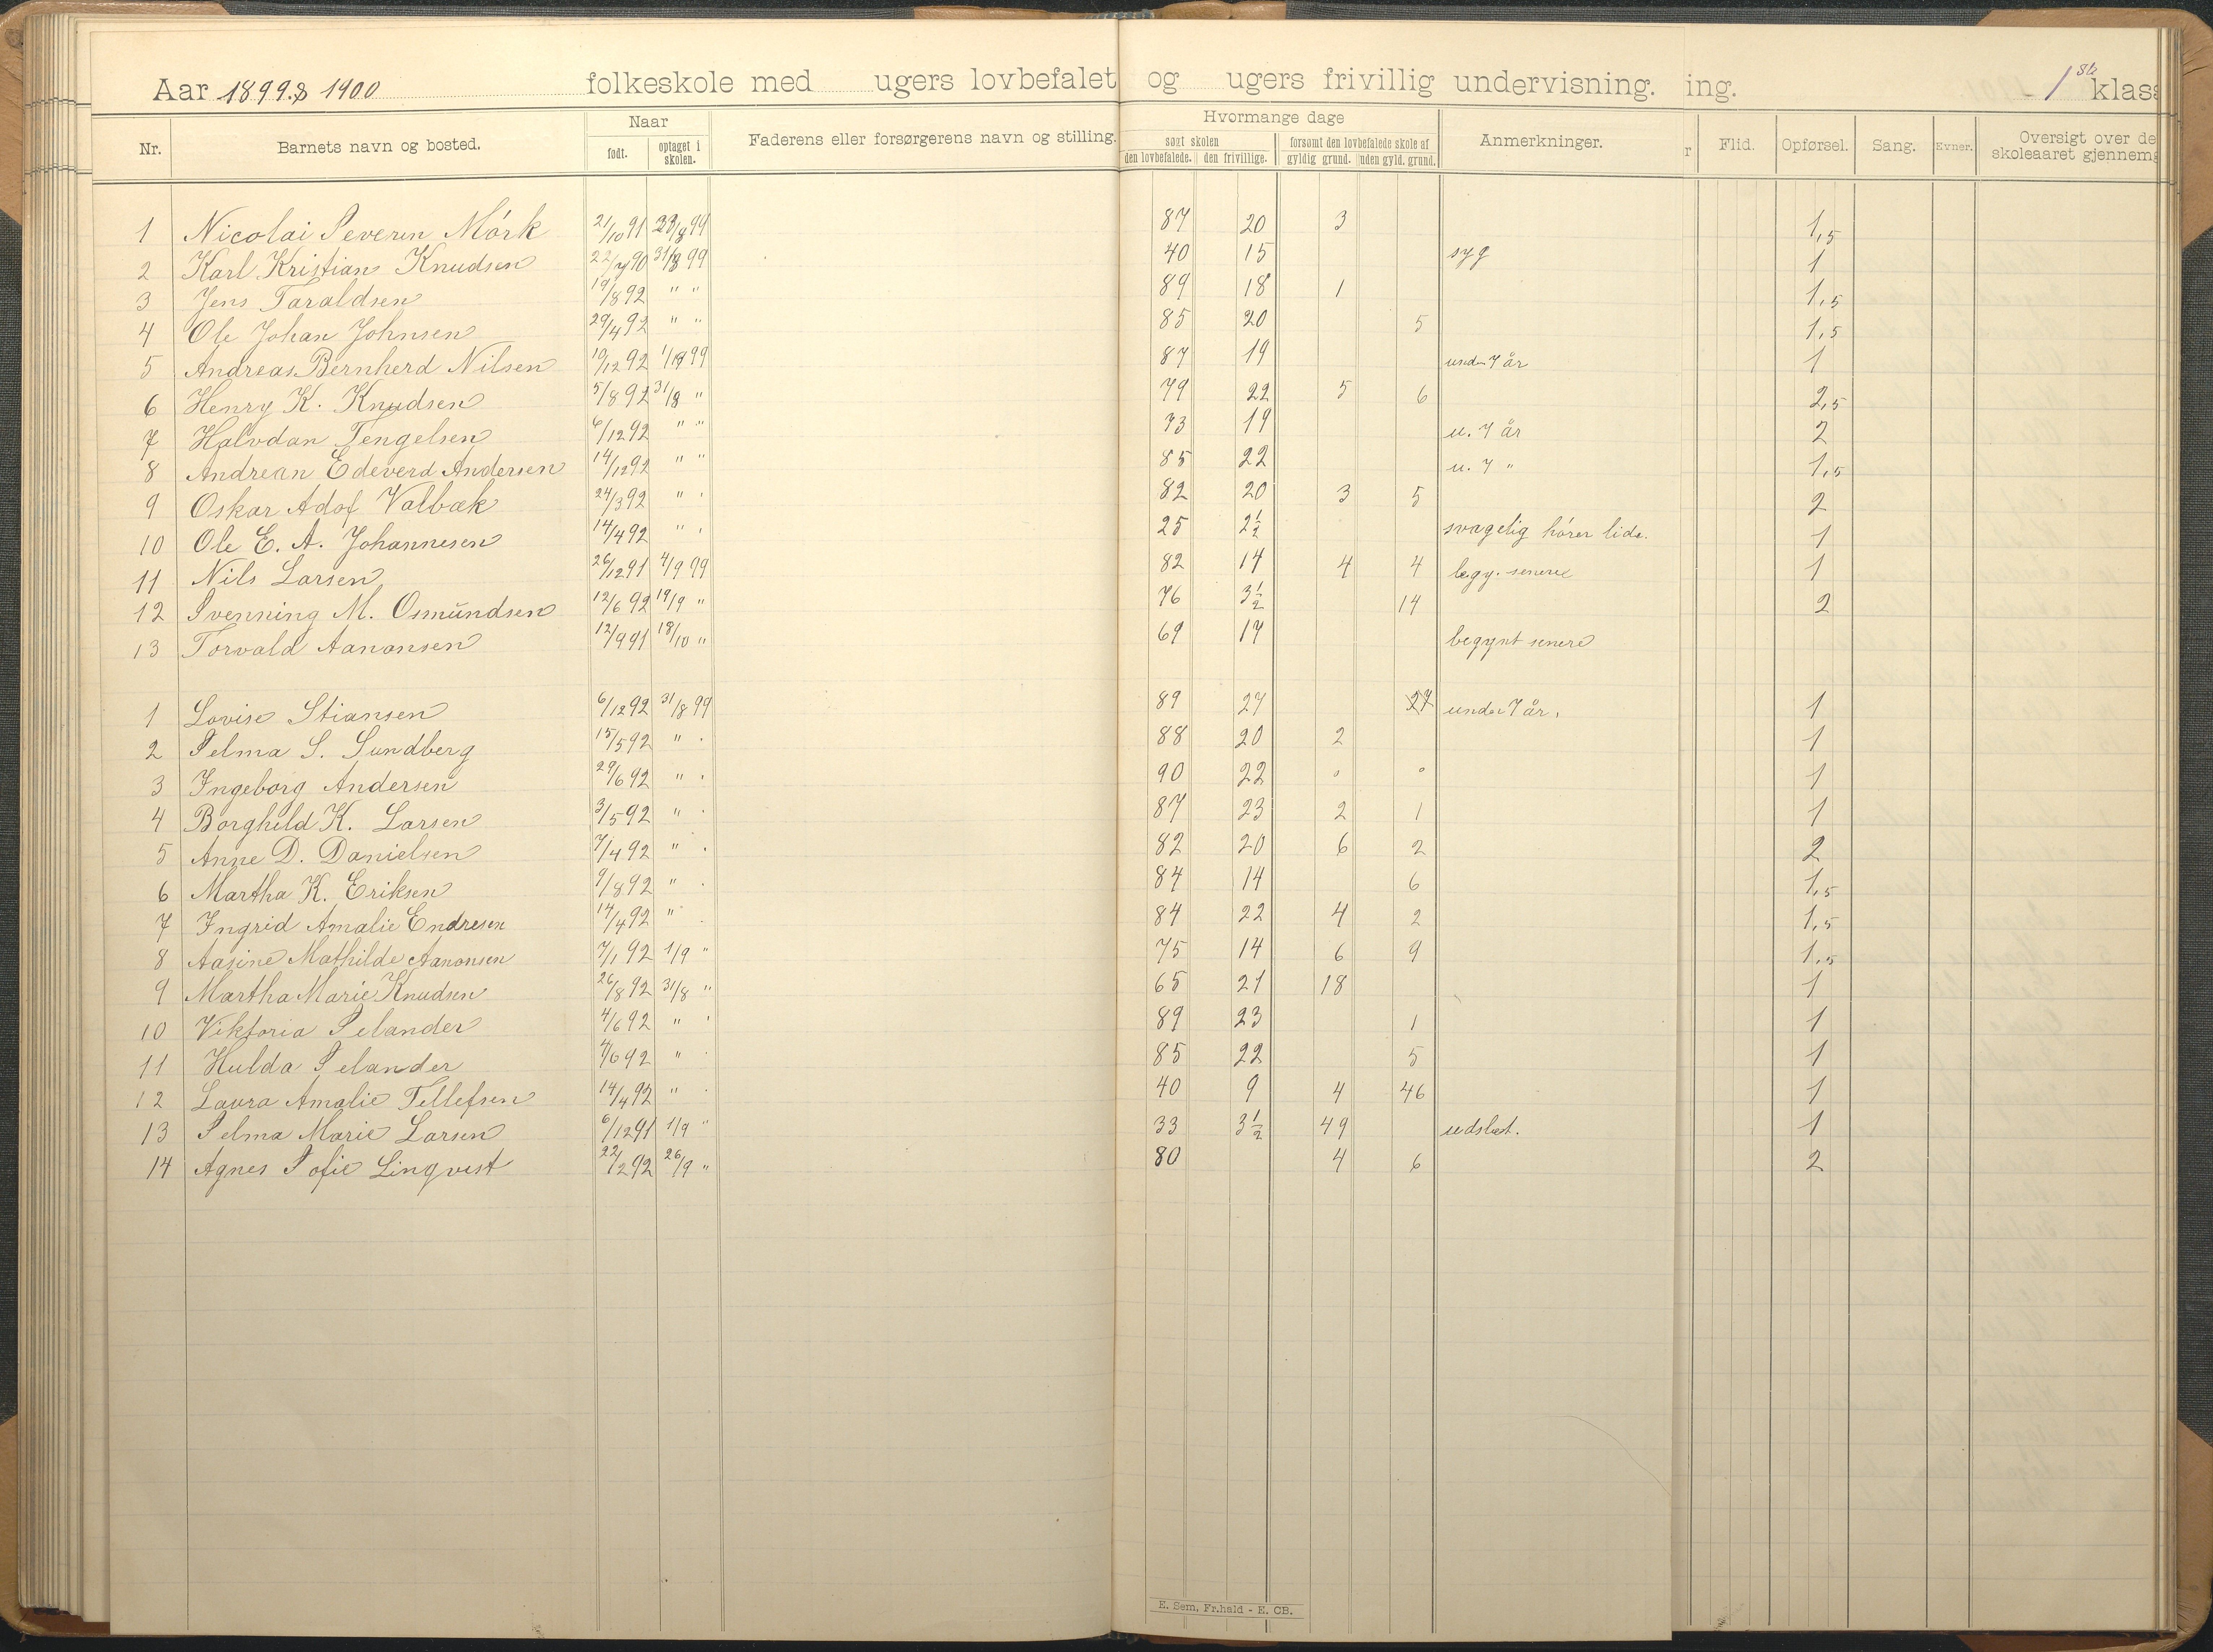 Aar 1899 & 1900 folkeskole med ugers lovbefalet og ugers frivillig undervisning. ing. 1ste klass
Nr. Barnets navn og bosted. Naar født. optaget i skolen. Faderens eller forsørgerens navn og stilling. Hvormange dage søgt skolen den lovbefalede. den frivillige. forsømt den lovbefalede skole af gyldig grund. uden gyld. grund. Anmerkninger. r Flid. Opførsel. Sang. Evner. Oversigt over de skoleaaret gjennemg
1 Nicolai Severin Mörk 21/10 91 28/8 99 87 20 3 1,5
2 Karl Kristian Knudsen 22/7 90 31/8 99 40 15 syg 1
3 Jens Taraldsen 19/8 92 " " 89 18 1 1,5
4 Ole Johan Johnsen 29/4 92 " " 85 20 5 1,5
5 Andreas Bernherd Nilsen 10/12 92 99 87 19 under 7 år 1
6 Henry K. Knudsen 5/8 92 31/8 " 79 22 5 6 2,5
7 Halvdan Tengelsen 6/12 92 " " 73 19 u. 7 år 2
8 Andrean Edeverd Andersen 14/12 92 " " 85 22 u. 7 " 1,5
9 Oskar Adof Valbæk 24/3 92 " " 82 20 3 5 2
10 Ole E. A. Johannesen 14/4 92 " " 25 2½ svagelig hører lide. 1
11 Nils Larsen 26/12 91 4/9 99 82 14 4 4 begy. senere 1
12 Svenning M. Osmundsen 12/6 92 19/9 " 76 3½ 14 2
13 Torvald Aanonsen 12/9 91 18/10 " 69 17 begynt senere
1 Lovise Stiansen 6/12 92 31/8 99 89 27 27 under 7 år. 1
2 Selma S. Sundberg 15/5 92 " " 88 20 2 1
3 Ingeborg Andersen 29/6 92 " " 90 22 " " 1
4 Borghild K. Larsen 3/5 92 " " 87 23 2 1 1
5 Anne D. Danielsen 7/4 92 " " 82 20 6 2 2
6 Martha K. Eriksen 9/8 92 " " 84 14 6 1,5
7 Ingrid Amalie Endresen 14/4 92 " " 84 22 4 2 1,5
8 Aasine Mathilde Aanonsen 7/1 92 1/9 " 75 14 6 9 1,5
9 Martha Marie Knudsen 26/8 92 31/8 " 65 21 18 1
10 Viktoria Selander 4/6 92 " " 89 23 1 1
11 Hulda Selander 4/6 92 " " 85 22 5 1
12 Laura Amalie Tellefsen 14/4 92 " " 40 9 4 46 1
13 Selma Marie Larsen 6/12 91 1/9 " 33 3½ 49 udslæt. 1
14 Agnes Sofie Linqvist 22/2 92 26/9 " 80 4 6 2
E. Sem, Fr.hald - E. CB.